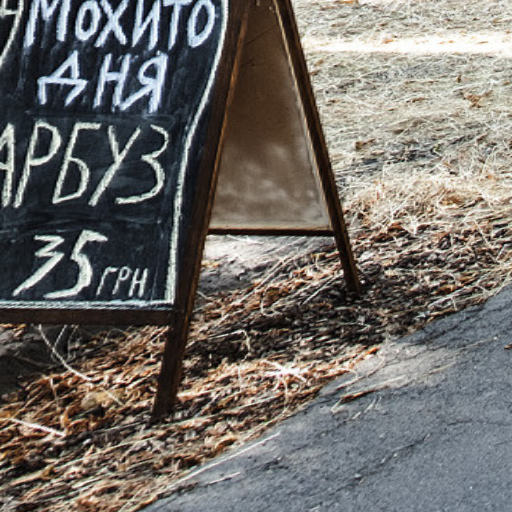 Мохито
дня
АРБУЗ
35 ГРН